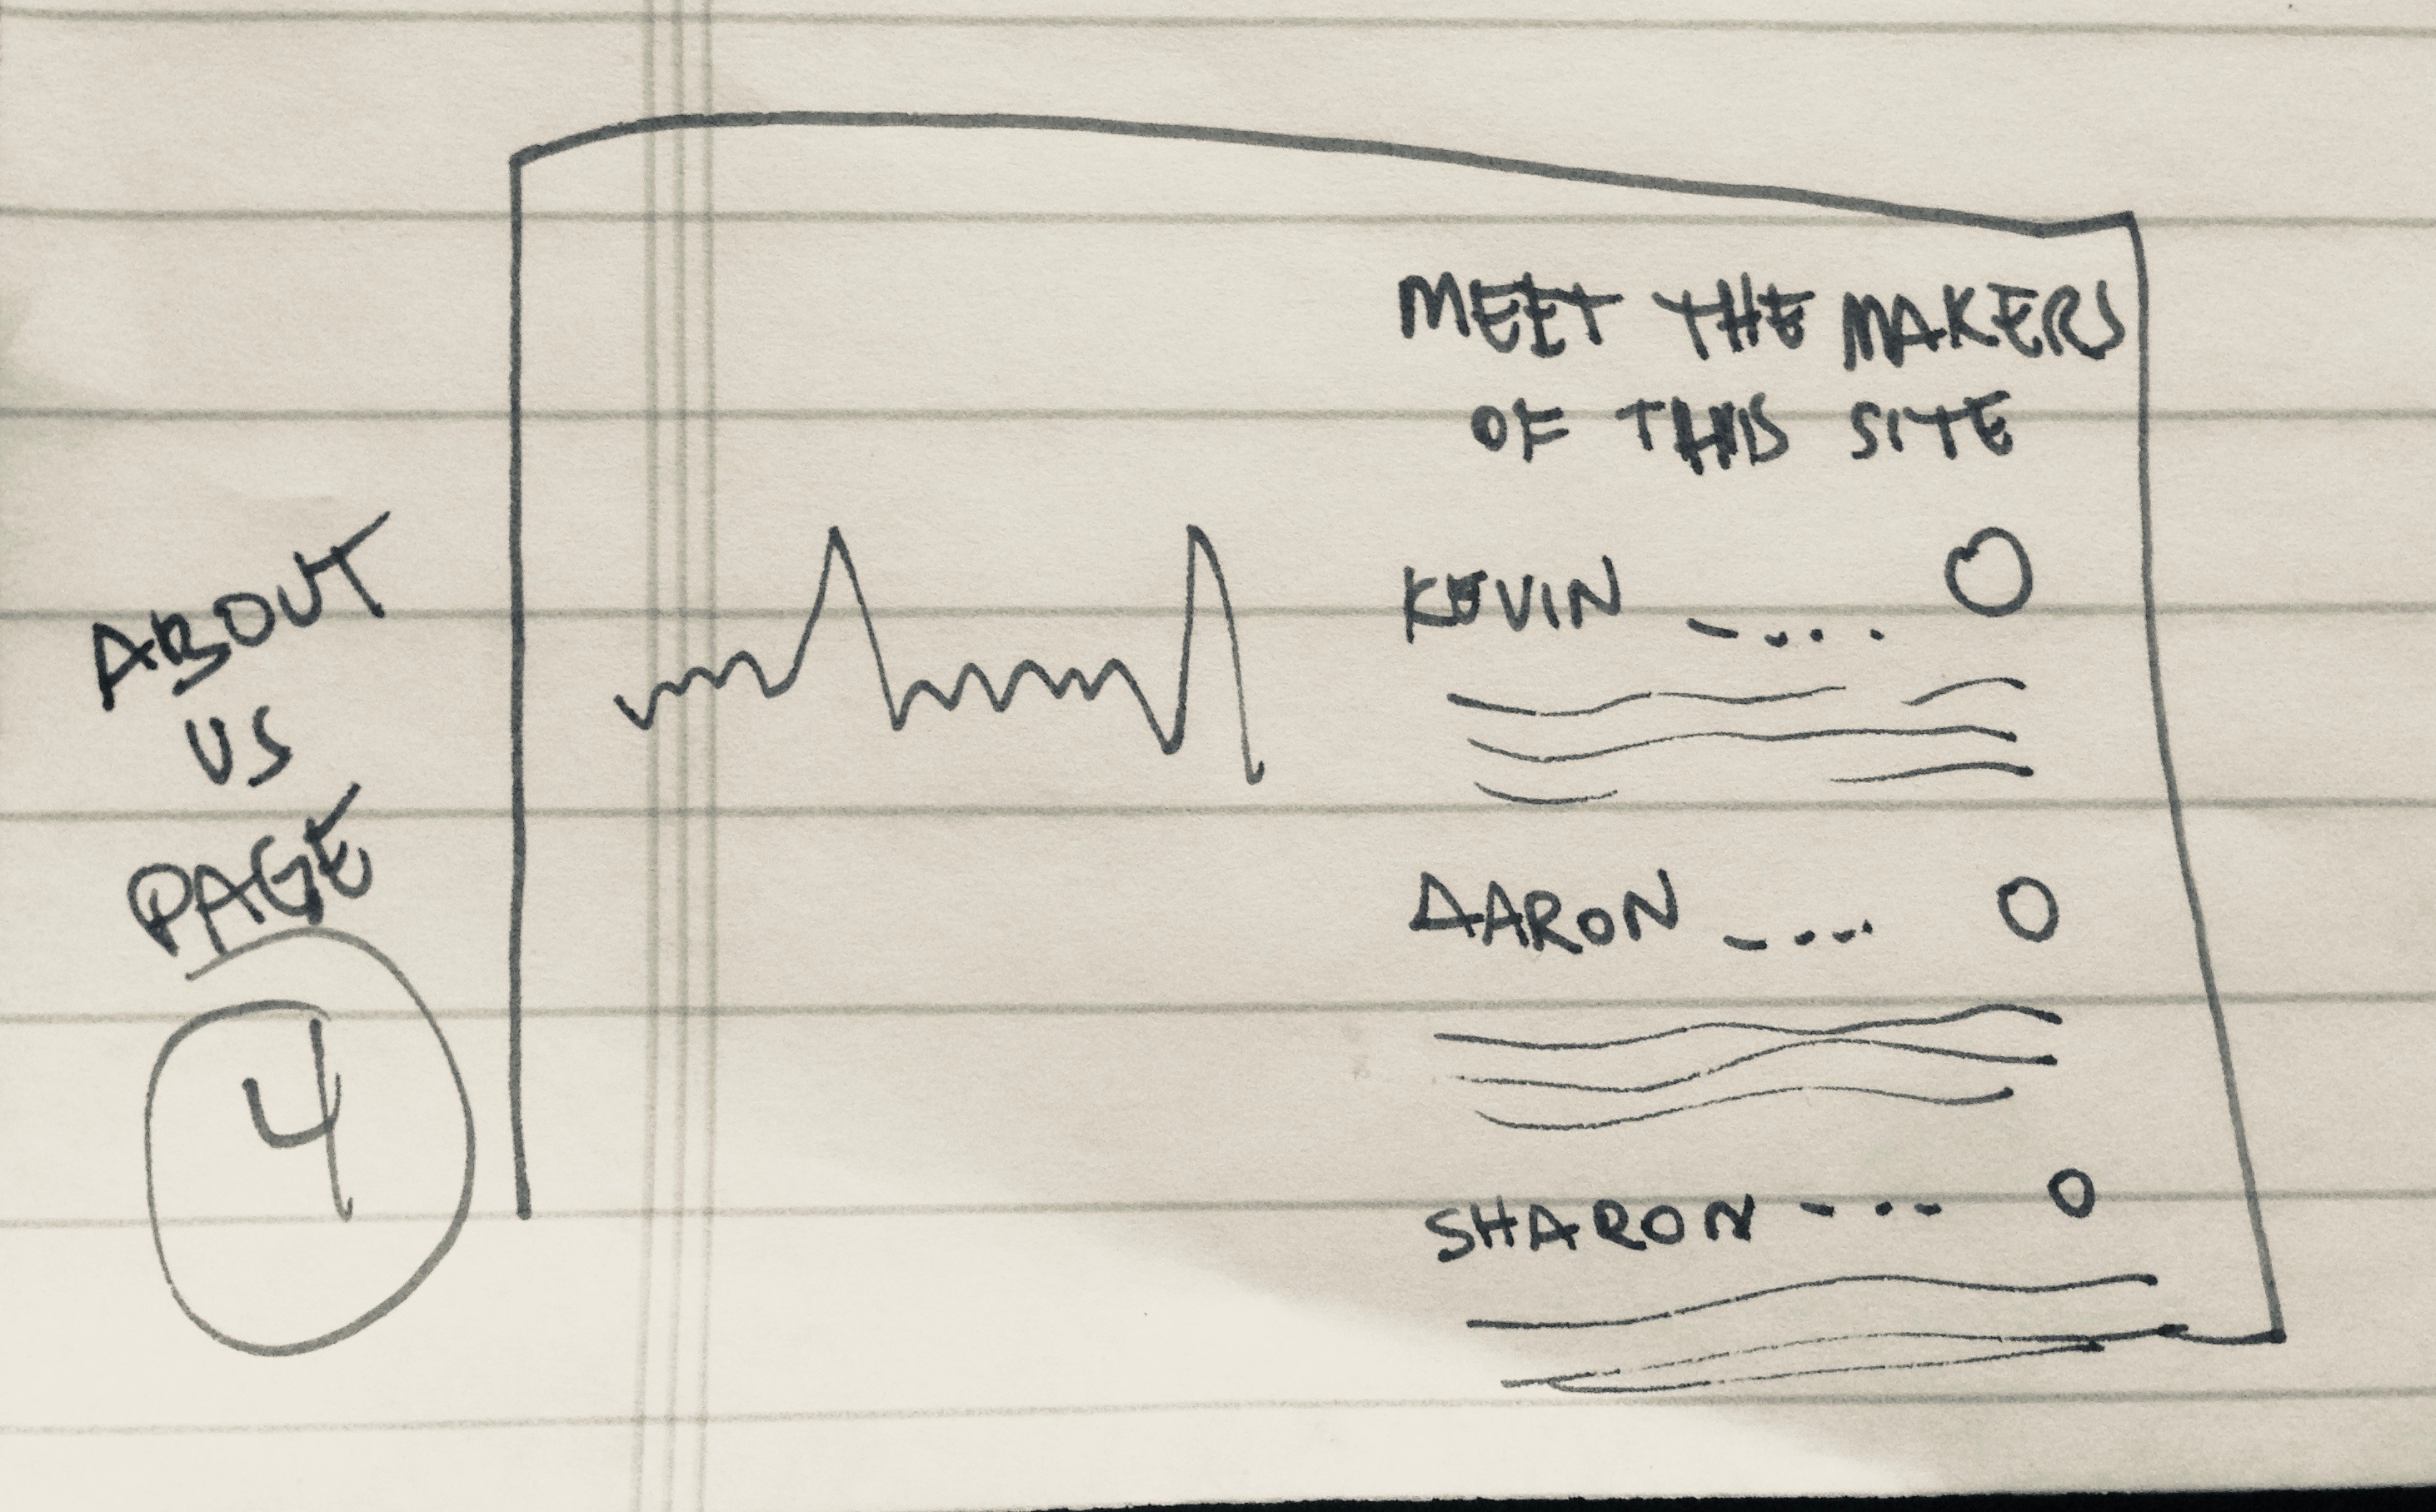 ABOUT
US
PAGE
4
MEET THE MAKERS
OF THIS SITE
KEVIN - . . . .
AARON - . . . .
SHARON - . . -